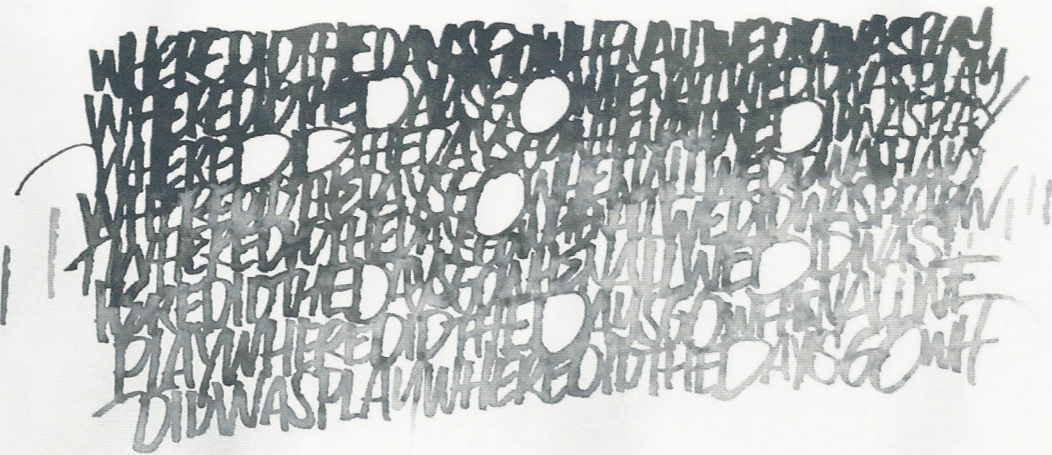 WHEREDIDTHEDAYSGOWHENALLWEDIDWASPLAY
WHEREDIDTHEDAYSGOWHENALLWEDIDWASPLAY
WHEREDIDTHEDAYSGOWHENALLWEDIDWASPLAY
WHEREDIDTHEDAYSGOWHENALLWEDIDWASPLAY
WHEREDIDTHEDAYSGOWHENALLWEDIDWASPLAYW
HEREDIDTHEDAYSGOWHENALLWEDIDWAS
PLAYWHEREDIDTHEDAYSGOWHENALLWE
DIDWASPLAYWHEREDIDTHEDAYSGOWH